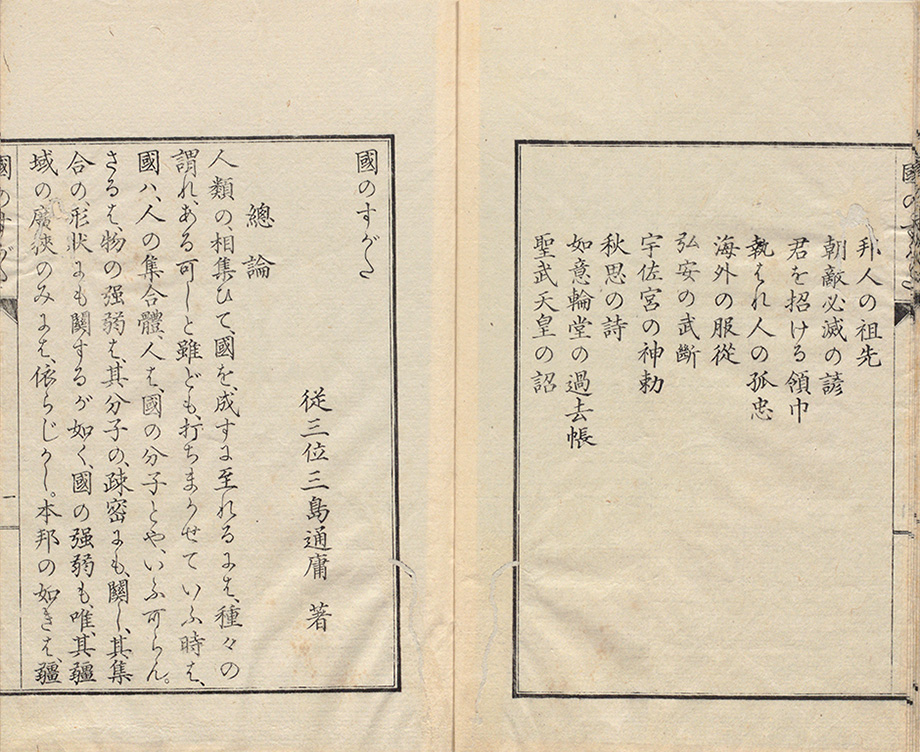 邦人の祖先
朝敵必滅の諺
君を招ける領巾
執はれ人の孤忠
海外の服從
弘安の武斷
宇佐宮の神勅
秋思の詩
如意輪堂の過去帳
聖武天皇の詔
國のすがた
從三位三島通庸 著
總論
人類の、相集ひて、國を、成すに至れるには、種々の
謂れ、ある可しと雖ども、打ちまかせていふ時は、
國ハ、人の集合體、人は、國の分子とや、いふ可らん。
さるは、物の强弱は、其分子の、疎密にも、關し、其集
合の、形狀にも關するが如く、國の强弱も、唯、其疆
域の廣狹のみには、依らじかし。本邦の如きは、疆